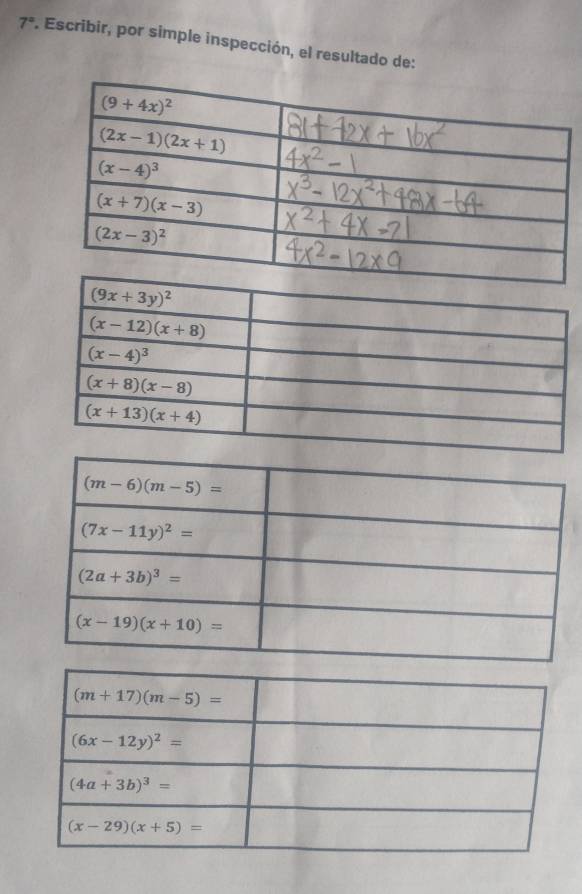 7°. Escribir, por simple inspección, el resultado de:
(9 + 4x)² 81 + 72x + 16x²
(2x − 1)(2x + 1) 4x² - 1
(x − 4)³ x³ - 12x² + 48x - 64
(x + 7)(x − 3) x² + 4x - 21
(2x − 3)² 4x² - 12x 9
(9x + 3y)²
(x − 12)(x + 8)
(x − 4)³
(x + 8)(x − 8)
(x + 13)(x + 4)
(m − 6)(m − 5) =
(7x − 11y)² =
(2a + 3b)³ =
(x − 19)(x + 10) =
(m + 17)(m − 5) =
(6x − 12y)² =
(4a + 3b)³ =
(x − 29)(x + 5) =